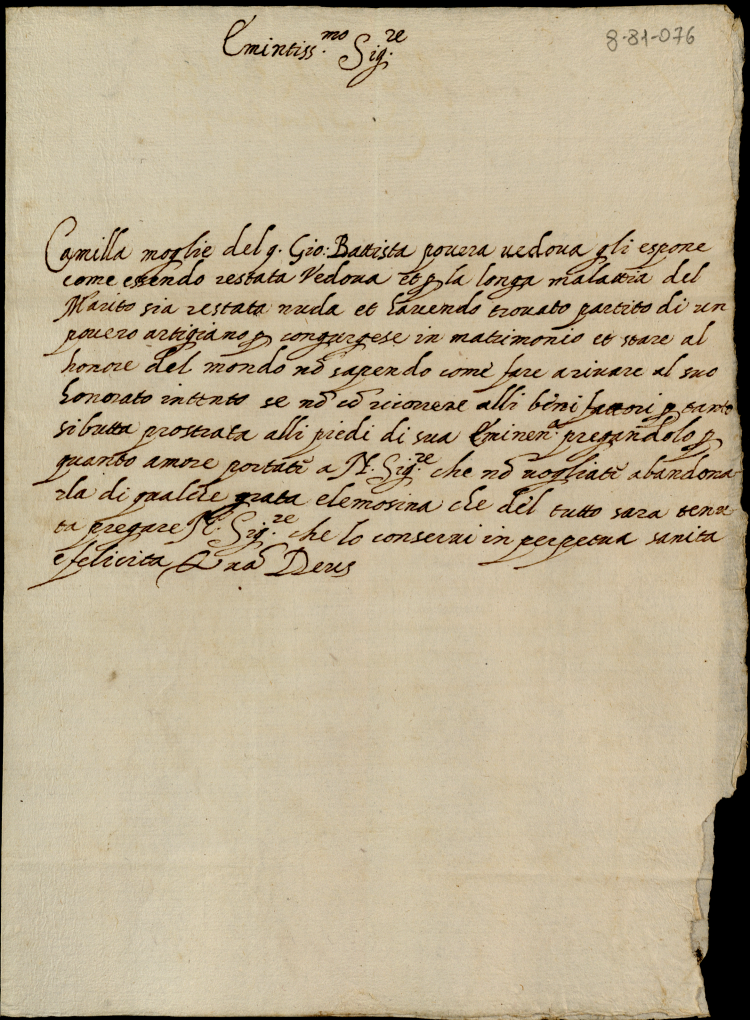 8-81-076
Emintiss.mo Sig.re
Camilla moglie del q. Gio: Battista povera vedova gli espone
come essendo restata Vedova et p la longa malattia del
Marito sia restata nuda et havendo trovato partito di un
povero artigiano p congiugese in matrimonio et stare al
honore del mondo nō sapendo come fare arivare al suo
honorato intento se nō cō ricorrere alli beni fattori p tanto
si butta prostrata alli piedi di sua Eminen.a pregandolo p
quanto amore portati a N. Sig.re che nō vogliati abandona
rla di qualche grata elemosina che del tutto sara tenu
ta pregare N. Sig.re che lo conservi in perpetua sanita
e felicita Deus